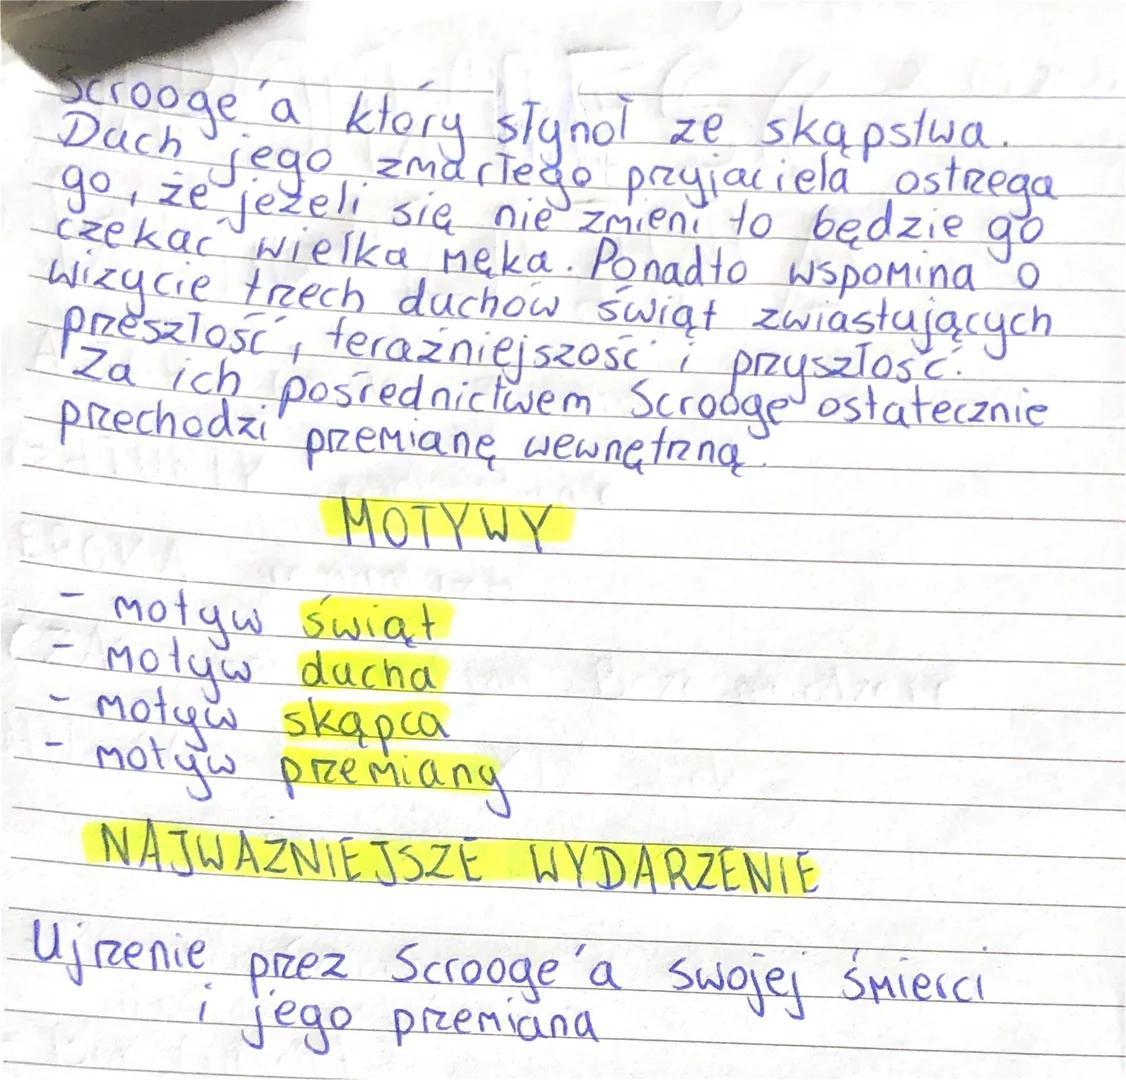 Scrooge'a który słynoł ze skąpstwa.
Duch jego zmarłego przyjaciela ostrzega
go, że jeżeli się nie zmieni to będzie go
czekać wielka męka. Ponadto wspomina o
wizycie trzech duchów świąt zwiastujących
przeszłość, teraźniejszość i przyszłość.
Za ich pośrednictwem Scrooge ostatecznie
przechodzi przemianę wewnętrzną.
MOTYWY
- motyw świąt
- motyw ducha
- motyw skąpca
- motyw przemiany
NAJWAŻNIEJSZE WYDARZENIE
Ujrzenie przez Scrooge'a swojej śmierci
i jego przemiana